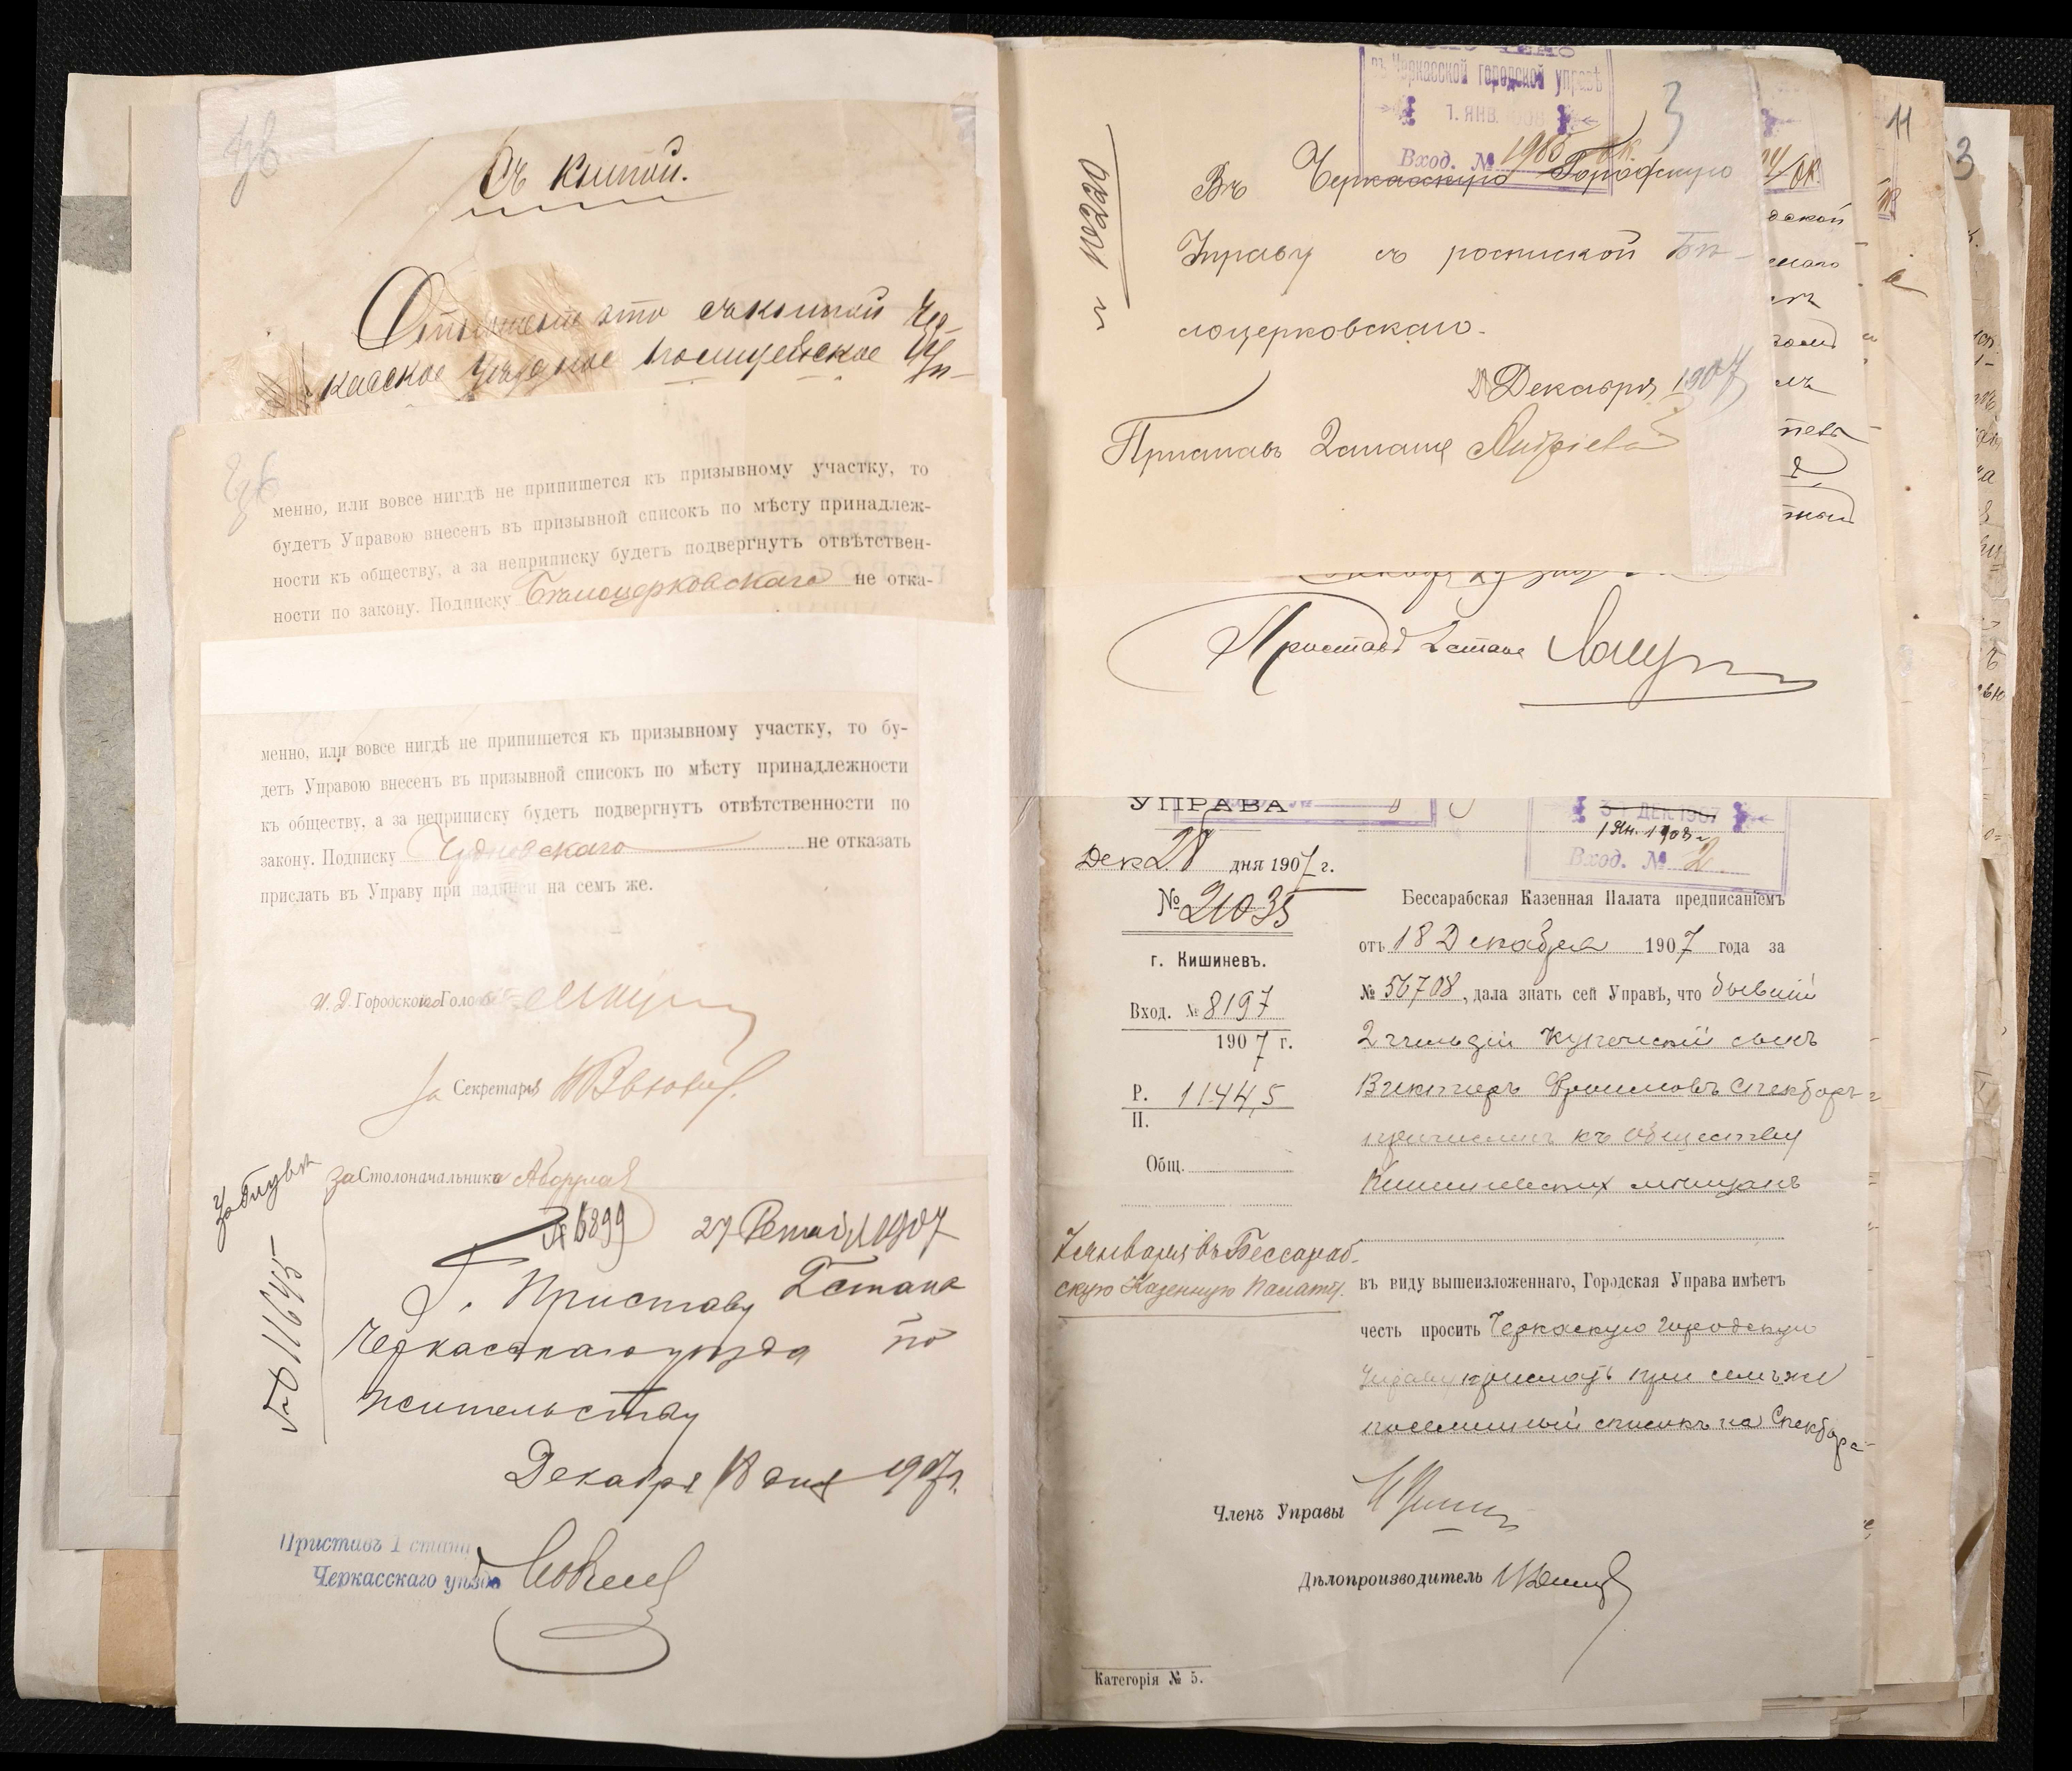 Съ книгой.
Отношеніе это съ книгой Чер-
касское Уѣздное Полицейское Уп-
менно, или вовсе нигдѣ не припишется къ призывному участку, то
будетъ Управою внесенъ въ призывной списокъ по мѣсту принадлеж-
ности къ обществу, а за неприписку будетъ подвергнутъ отвѣтствен-
ности по закону. Подписку Бѣлоцерковскаго не отка-
менно, или вовсе нигдѣ не припишется къ призывному участку, то бу-
детъ Управою внесенъ въ призывной списокъ по мѣсту принадлежности
къ обществу, а за неприписку будетъ подвергнутъ отвѣтственности по
закону. Подписку Чудновскаго не отказать
прислать въ Управу при надписи на семъ же.
И. Д. Городского Головы
За Секретаря
За Столоначальника
№ 6899 27 1907
Г. Приставу 2 стана
Черкасскаго уѣзда по
жительству
Декабря 18 дня 1907 г.
№ 11645
Приставъ 1 стана
Черкасскаго уѣзда
въ Черкасской городской управѣ
1. ЯНВ. 1908
Вход. № 1905
3
№ 10220
Въ Черкасскую Городскую
Управу съ роспиской Бѣ-
лоцерковскаго.
Декабря 1907
Приставъ 2 стана
Приставъ 2 стана
11
3
УПРАВА
Дек. 28 дня 1907 г.
№ 21035
г. Кишиневъ.
Вход. № 8197
1907 г.
Р. 11445
П.
Общ.
7 января въ Бессараб-
скую Казенную Палату.
31 ДЕК 1907
1 Ян. 1908 г.
Вход. № 2
Бессарабская Казенная Палата предписаніемъ
отъ 18 Декабря 1907 года за
№ 56708, дала знать сей Управѣ, что бывшій
2 гильдіи купеческій сынъ
Викторъ Фроимовъ Спекторъ
причисленъ къ обществу
Кишиневскихъ мѣщанъ
въ виду вышеизложеннаго, Городская Управа имѣетъ
честь просить Черкасскую городскую
Управу прислать при семъ же
посемейный списокъ на Спектора
Членъ Управы
Дѣлопроизводитель
Категорія № 5.